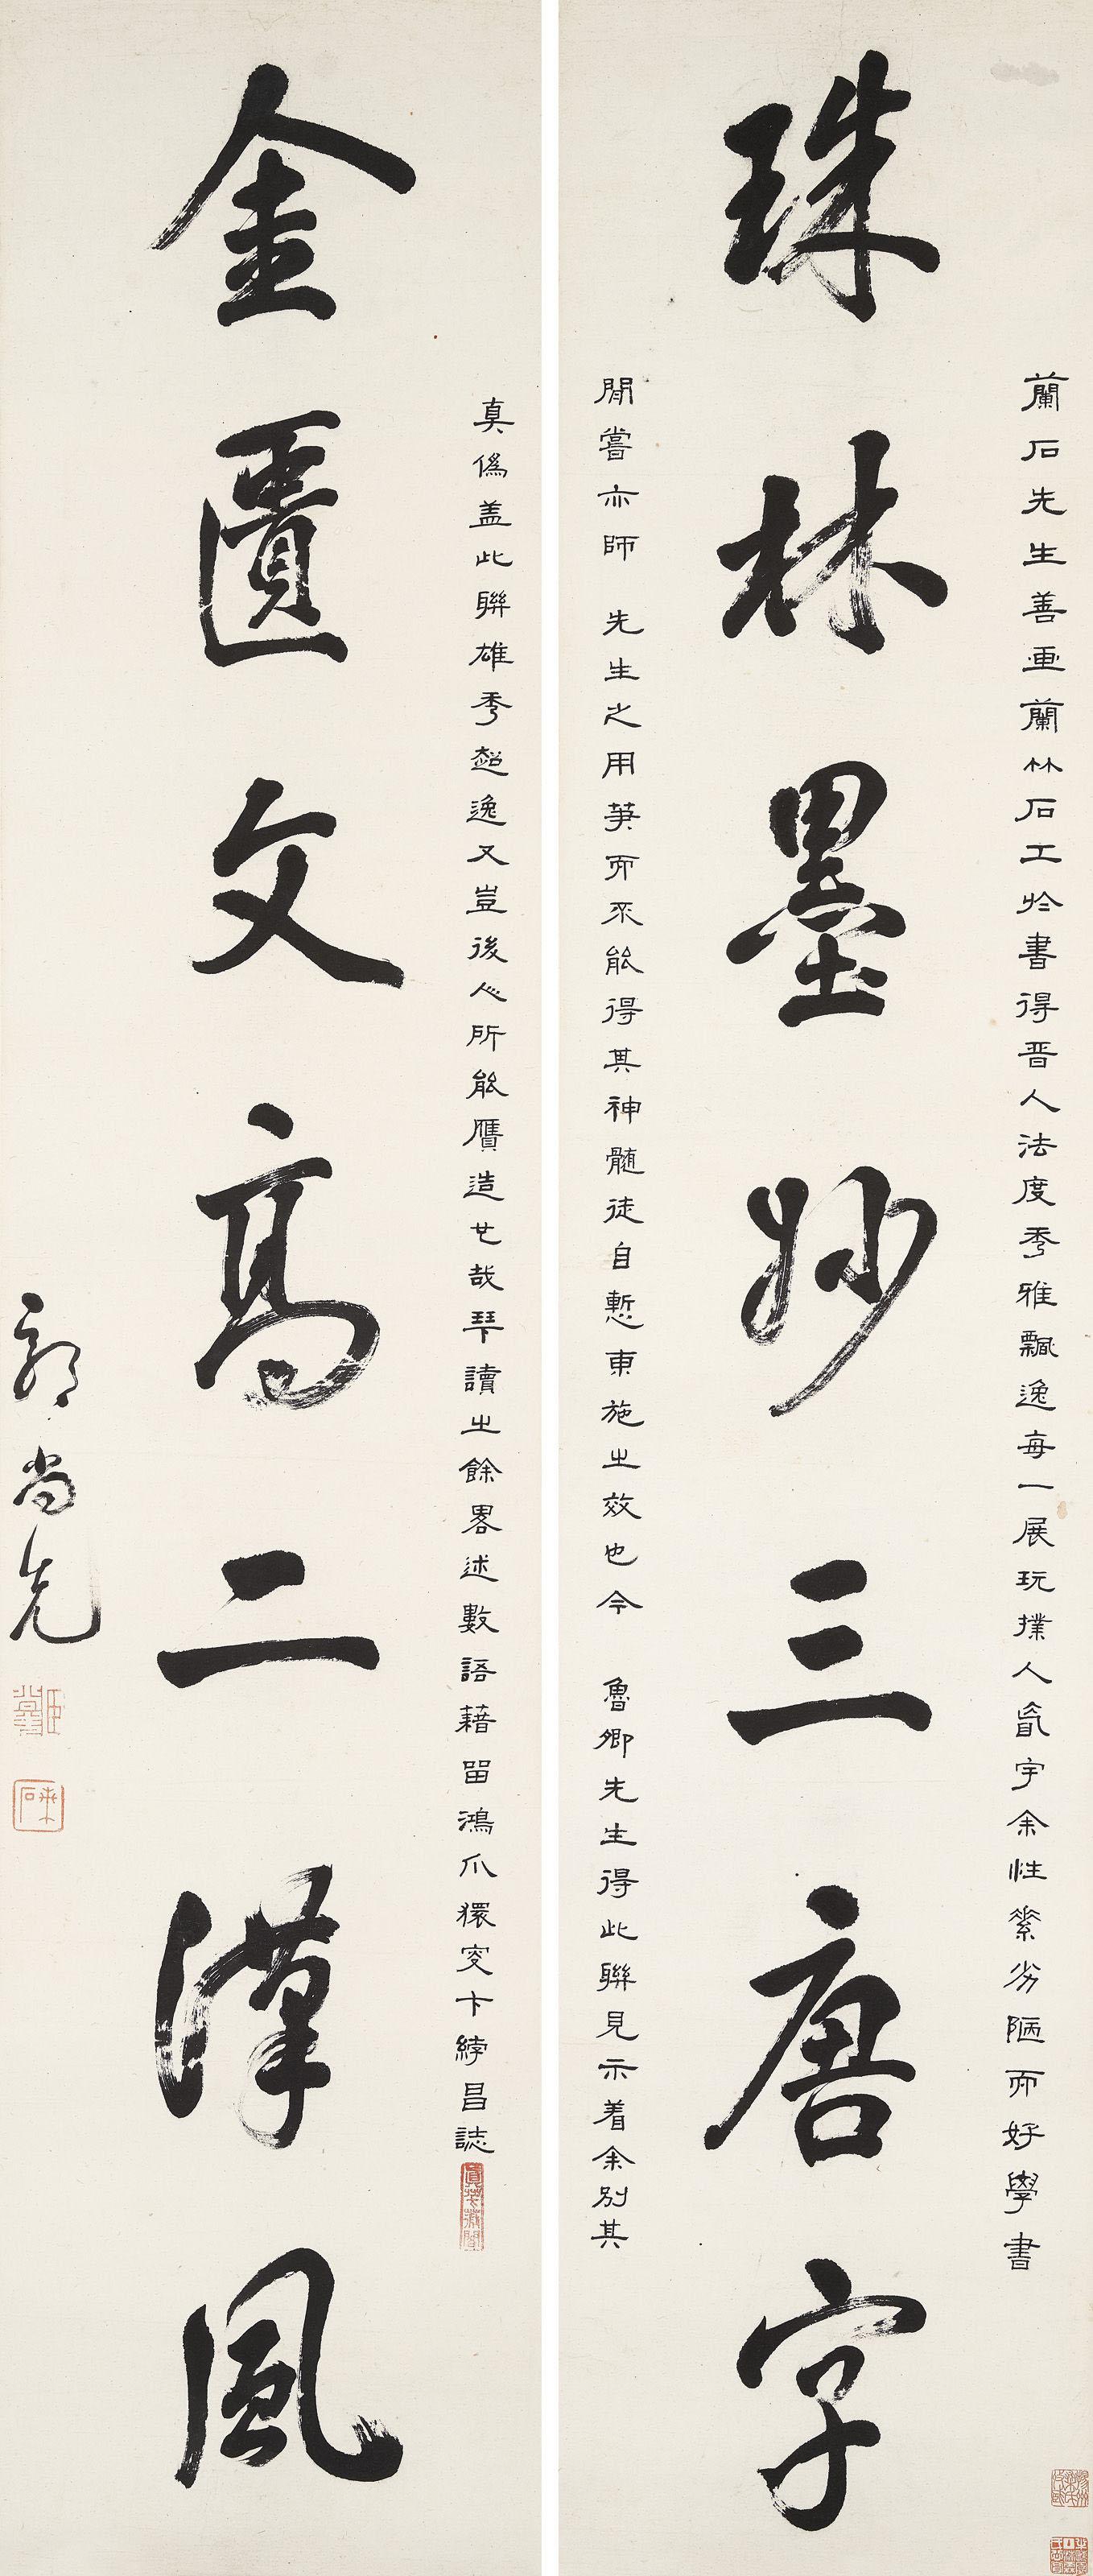 珠林墨妙三唐字
金匱文高二漢風
郭尚先
蘭石先生善画蘭竹石工於書得晋人法度秀雅飄逸每一展玩撲人眉宇余性素劣陋而好學書
閒嘗亦師 先生之用筆而不能得其神髓徒自慙東施之效也今 魯卿先生得此聯見示着余別其
真僞盖此聯雄秀超逸又豈後人所能贋造也哉琴讀之餘畧述數語藉留鴻爪
昌誌